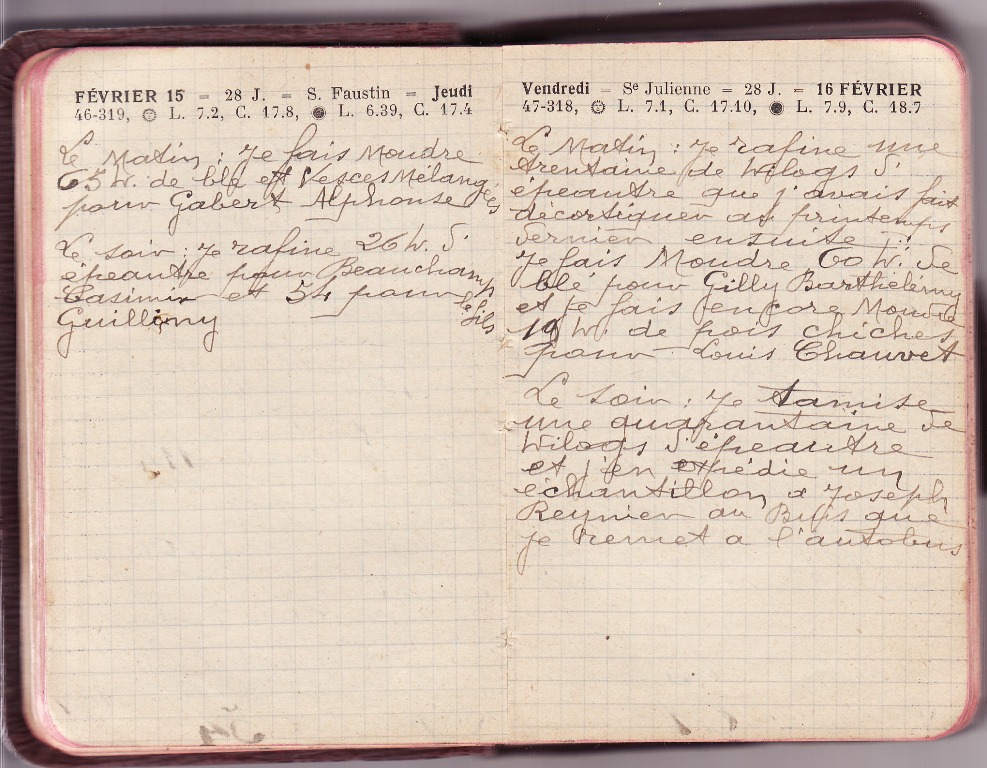 FÉVRIER 15 = 28 J. = S. Faustin = Jeudi
46-319, L. 7.2, C. 17.8, ● L. 6.39, C. 17.4
Le Matin : Je fais Moudre
65 W. de blé et Vesces Melangées
pour Gabert Alphonse
Le soir : je rafine 26 W. d'
épeautre pour Beauchamp
Casimir et 54 pour le fils
Guilliny
Vendredi – Sᵉ Julienne – 28 J. – 16 FÉVRIER
47-318, L. 7.1, C. 17.10, ● L. 7.9, C. 18.7
Le Matin : Je rafine une
trentaine de Wilogs d'
épeautre que j'avais fait
décortiquer au printemps
dernier ensuite
je fais Moudre 60 W. de
blé pour Gilly Barthélémy
et je fais encore Moudre
19 W. de pois chiches
pour Louis Chauvet
Le soir : je tamise
une quarantaine de
Wilogs d'épeautre
et j'en expédie un
échantillon a Joseph
Reynier au Buis que
je remet a l'autobus